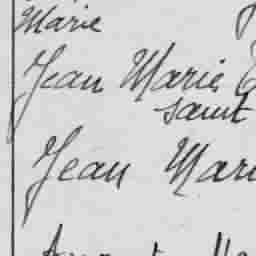 Marie
Jean Marie
saint
Jean Mari